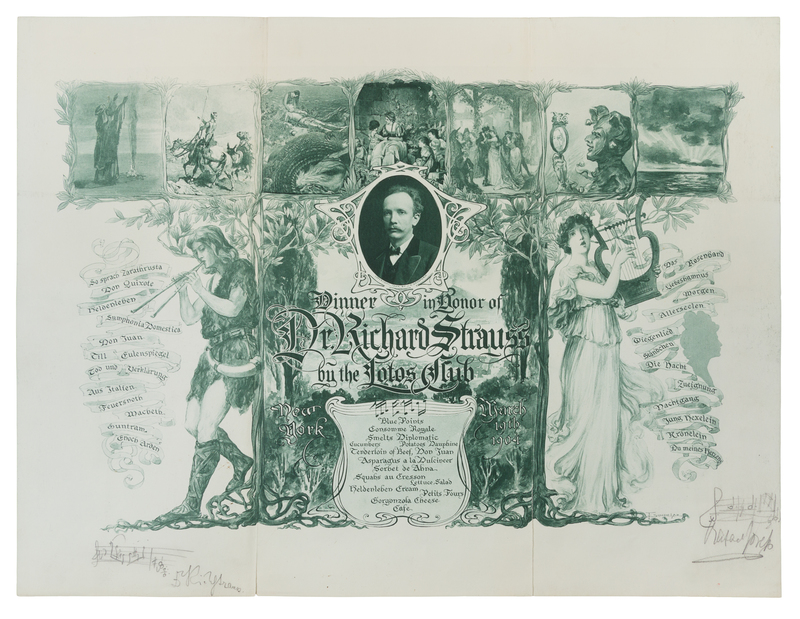 So sprach Zarathrusta
Don Quixote
Heldenleben
Symphonia Domestica
Don Juan
Till Eulenspiegel
Tod und Verklärung
Aus Italien
Feuersnoth
Macbeth
Guntram
Enoch Arden
Dinner in Honor of
Dr. Richard Strauss
by the Lotos Club
New York
March
19th
1904
Blue Points
Consomme Royale
Smelts Diplomatic
Cucumbers Potatoes Dauphine
Tenderloin of Beef, Don Juan
Asparagus a la Dulcineer
Sorbet de Ahna
Squabs au Cresson
Lettuce Salad
Heldenleben Cream
Petits Fours
Gorgonzola Cheese
Cafe
Das Rosenband
Liebeshymnus
Morgen
Allerseelen
Wiegenlied
Ständchen
Die Nacht
Zueignung
Nachtgang
Jung Hexelein
Kränelein
Du meines